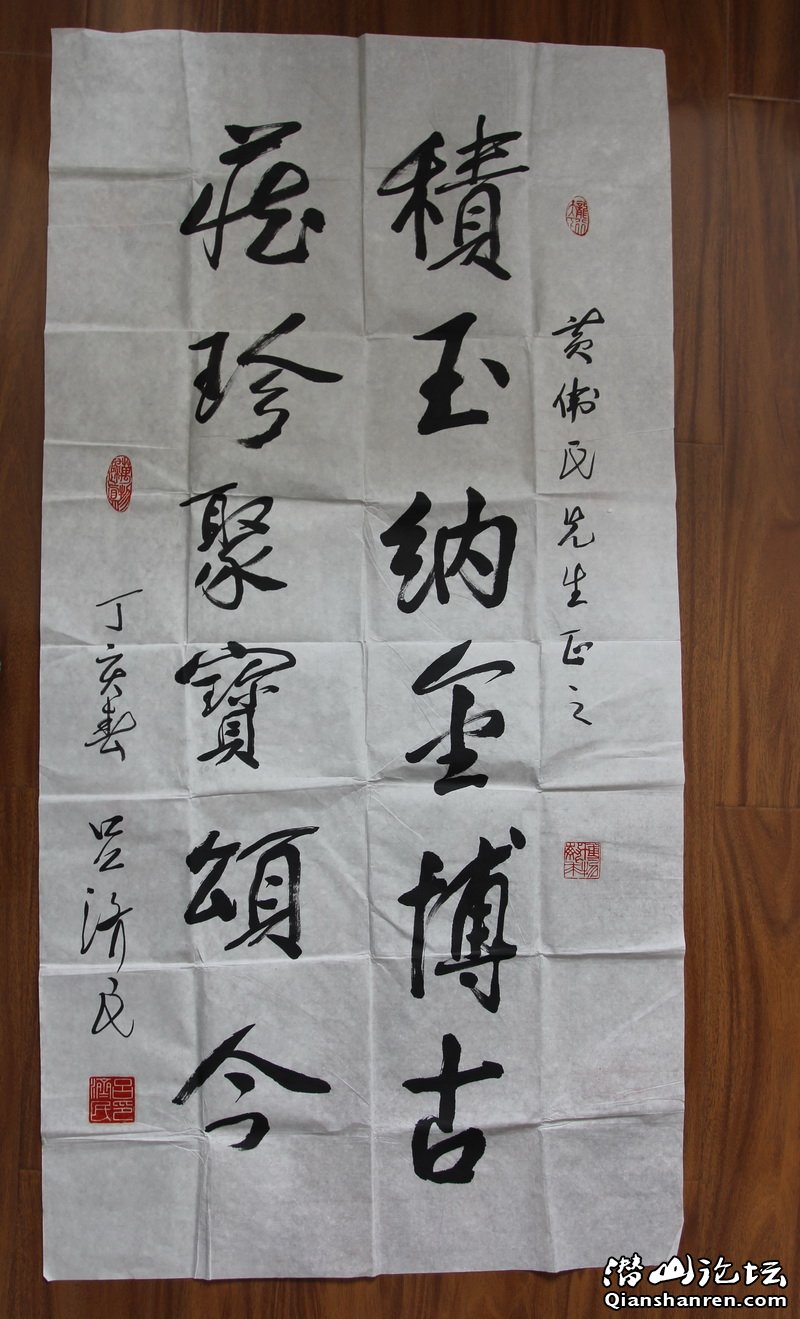 黄偉民先生正之
積玉纳金博古
藏珍聚寶頌今
丁亥春 吕济民
吕济民印
潜山论坛
Qianshanren.com